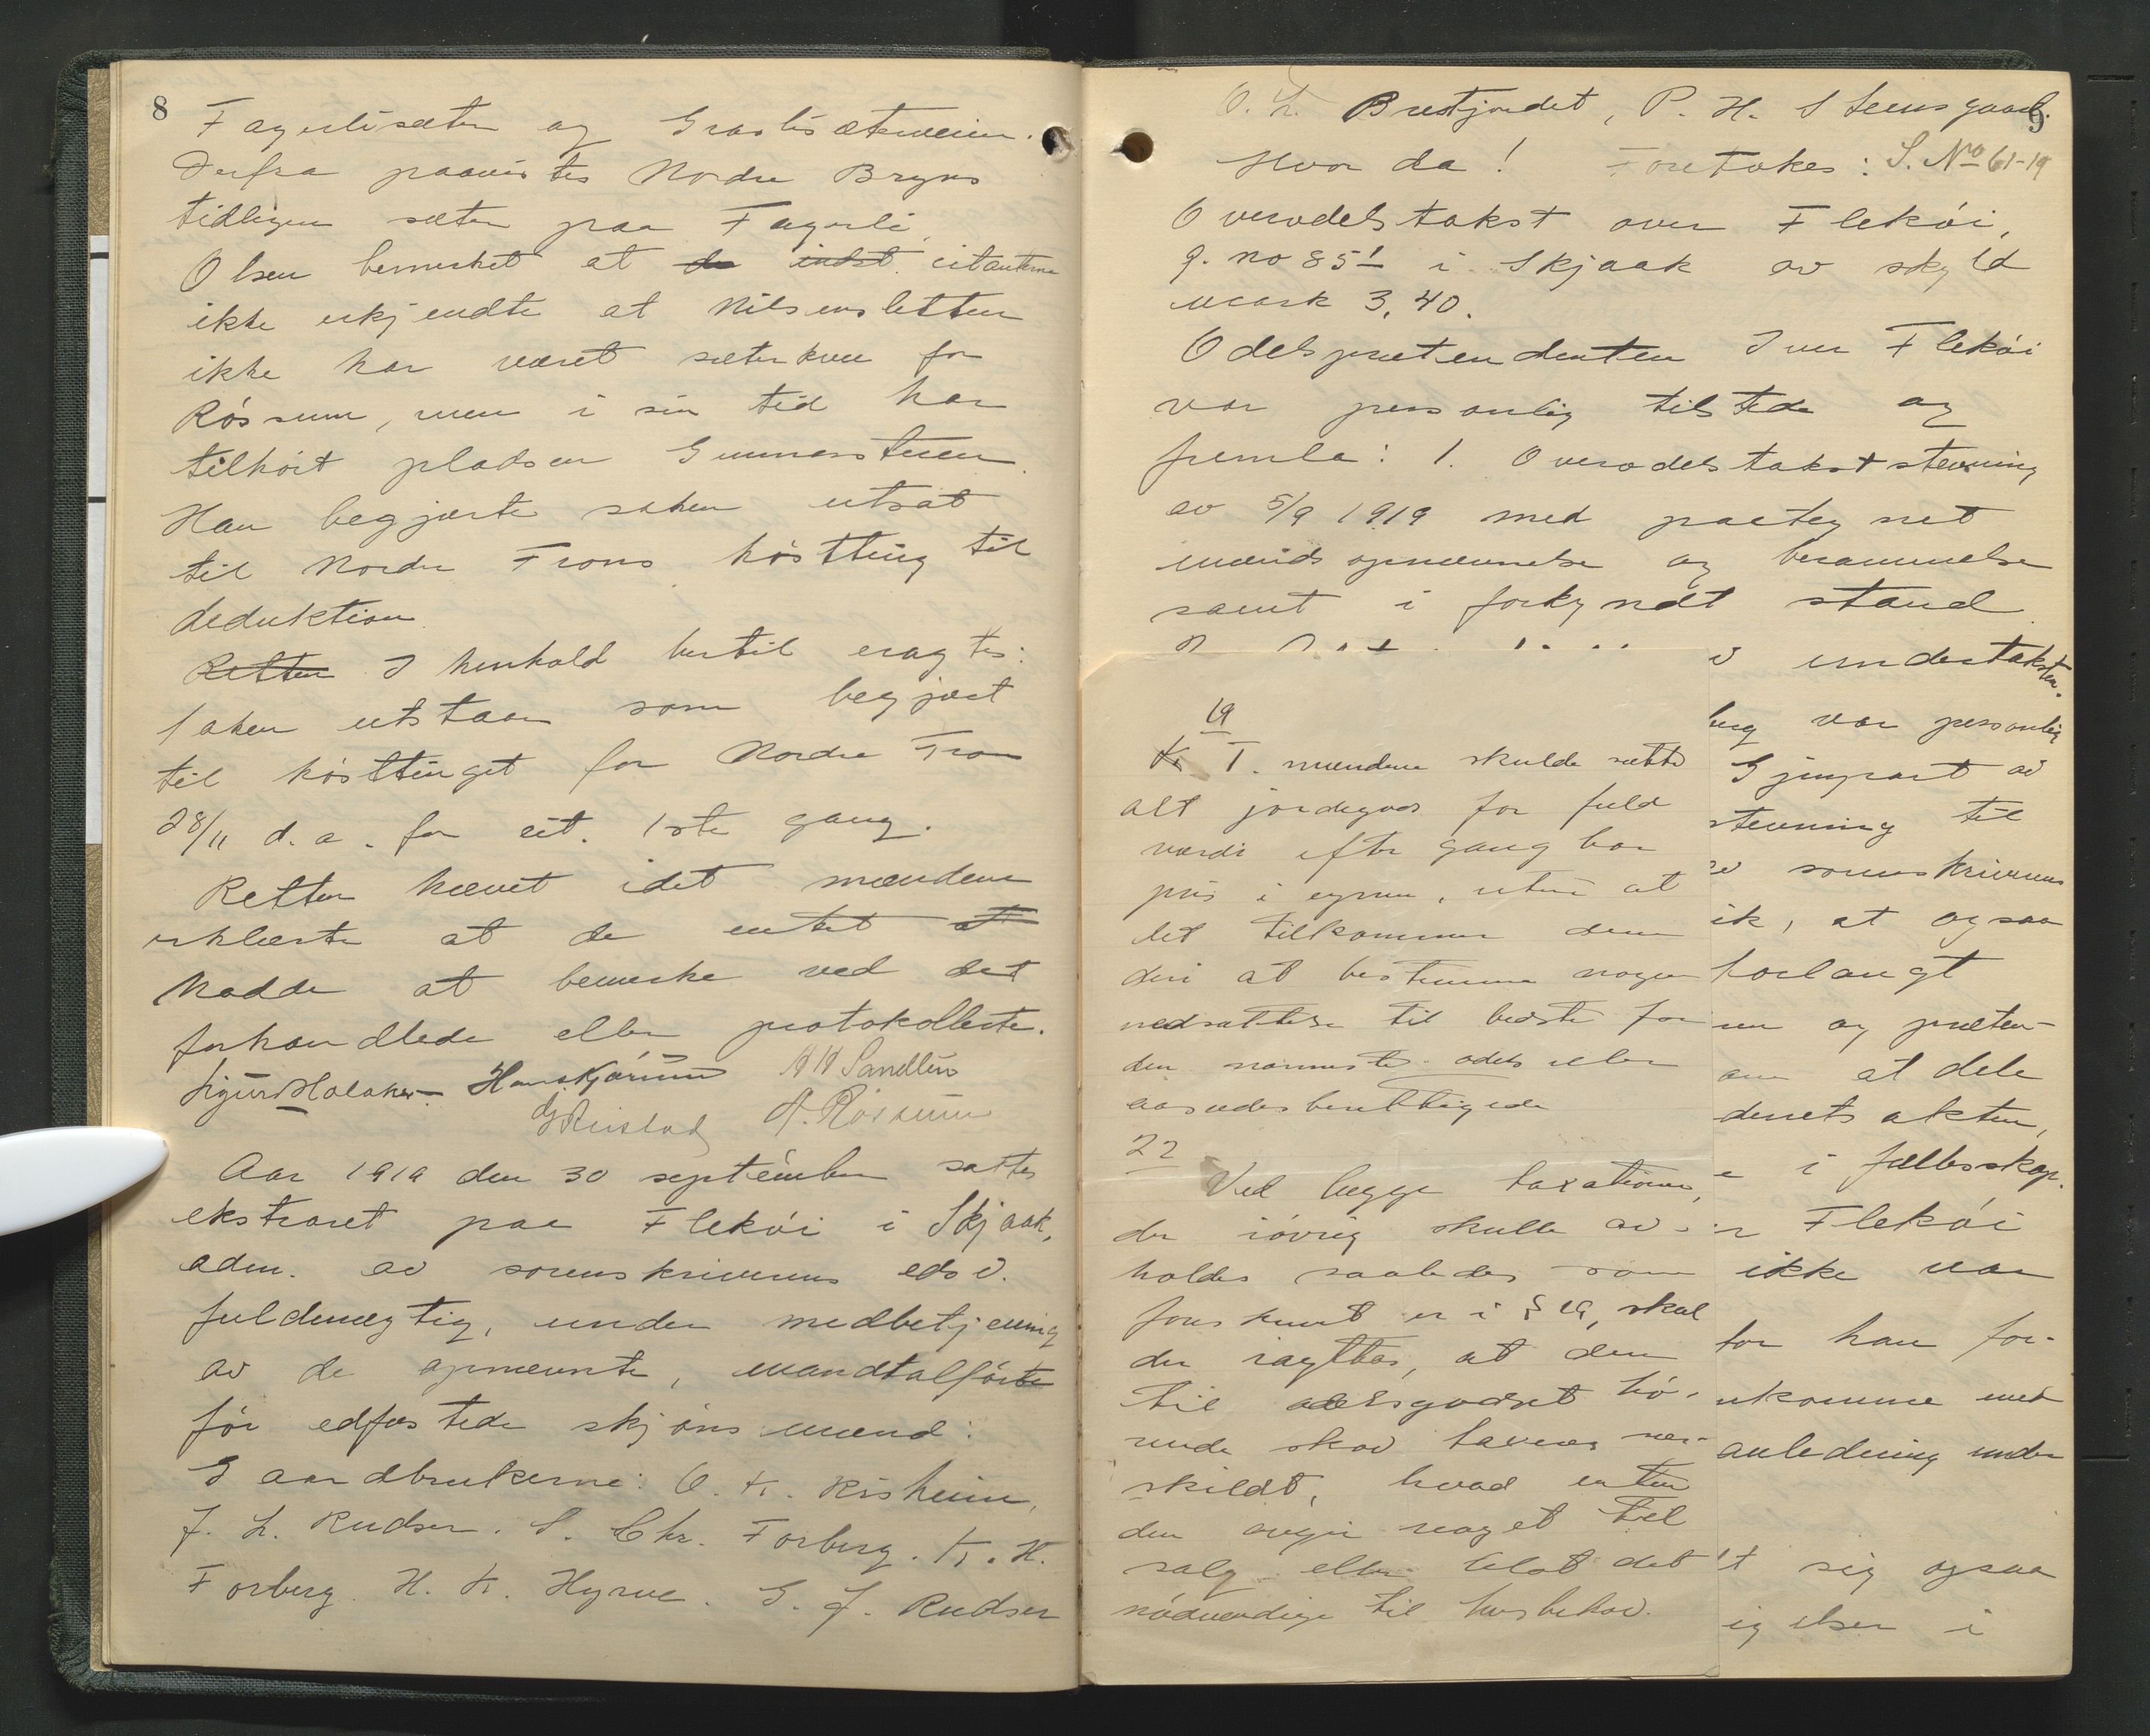 8
Fagerlisæter og Graslisæterveien.
Derfra paavistes Nordre Bryns
tidligere sæter paa Fagerli.
Olsen bemerket at de indst. citanterne
ikke erkjendte at Nilsensletten
ikke har været sæterkve for
Røssum, men i sin tid har
tilhørt pladsen Gunnarstuen.
Han begjærte saken utsat
til Nordre Frons høstting til
deduktion.
Retten I henhold hertil eragtes:
Saken utstaar som begjært
til høsttinget for Nordre Fron
28/11 d.a. for cit. 1ste gang.
Retten hævet idet mændene
erklærte at de intet at
hadde at bemerke ved det
forhandlede eller protokollerte.
Sigurd Holaker Hans Kjørum H H Sandbu
G Reistad A. Røssum
Aar 1919 den 30 september sattes
ekstraret paa Flekøi i Skjaak,
adm. av sorenskriverens edsv.
fuldmægtig, under medbetjening
av de opnævnte, mandtalførte
før edfæstede skjønsmænd:
Gaardbrukerne: O. K. Risheim,
J. L. Rudser. S. Chr. Forberg. K. H.
Forberg. H. K. Hyrve. G. J. Rudser
9
O. L. Brustjondet, P. H. Steensgaard.
Hvor da! Foretokes: S. No 61-19
Overodelstakst over Flekøi,
g. no 85/1 i Skjaak av skyld
mark 3,40.
Odelsprætendenten Iver Flekøi
var personlig tilstede og
fremla: 1. Overodelstakststevning
av 5/9 1919 med paategnet
mændsopnævnelse og berammelse
samt i forkyndt stand
v undertaksten.
19
T. mændene skulde sætte
alt jordegods for fuld
værdi efter gangbar
pris i egnen, uten at
det tilkommer dem
deri at bestemme nogen
nedsættelse til bedste for
den nærmeste odels eller
aasædesberettigede
22
Ved begge taxationer,
der iøvrig skulle av-
holdes saaledes som
foreskrevet er i § 19, skal
der iagttas, at den
til odelsgodset hø-
rende skov taxeres sær-
skildt, hvad enten
den avgir noget til
salg eller blot det
nødvendige til husbehov.
berg var personlig
Gjenpart av
stevning til
av sorenskriverens
ik, at ogsaa
forlangt
en og præten-
om at dele
denets akten,
e i fællesskap.
r Flekøi
ikke var
for han for-
ukomme med
anledning under
t sig ogsaa
ig elser i